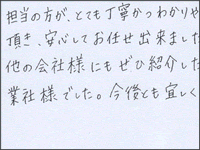 担当の方が、とても丁寧かつわかりや
頂き、安心してお任せ出来ました
他の会社様にもぜひ紹介した
業社様でした。今後とも宜しく